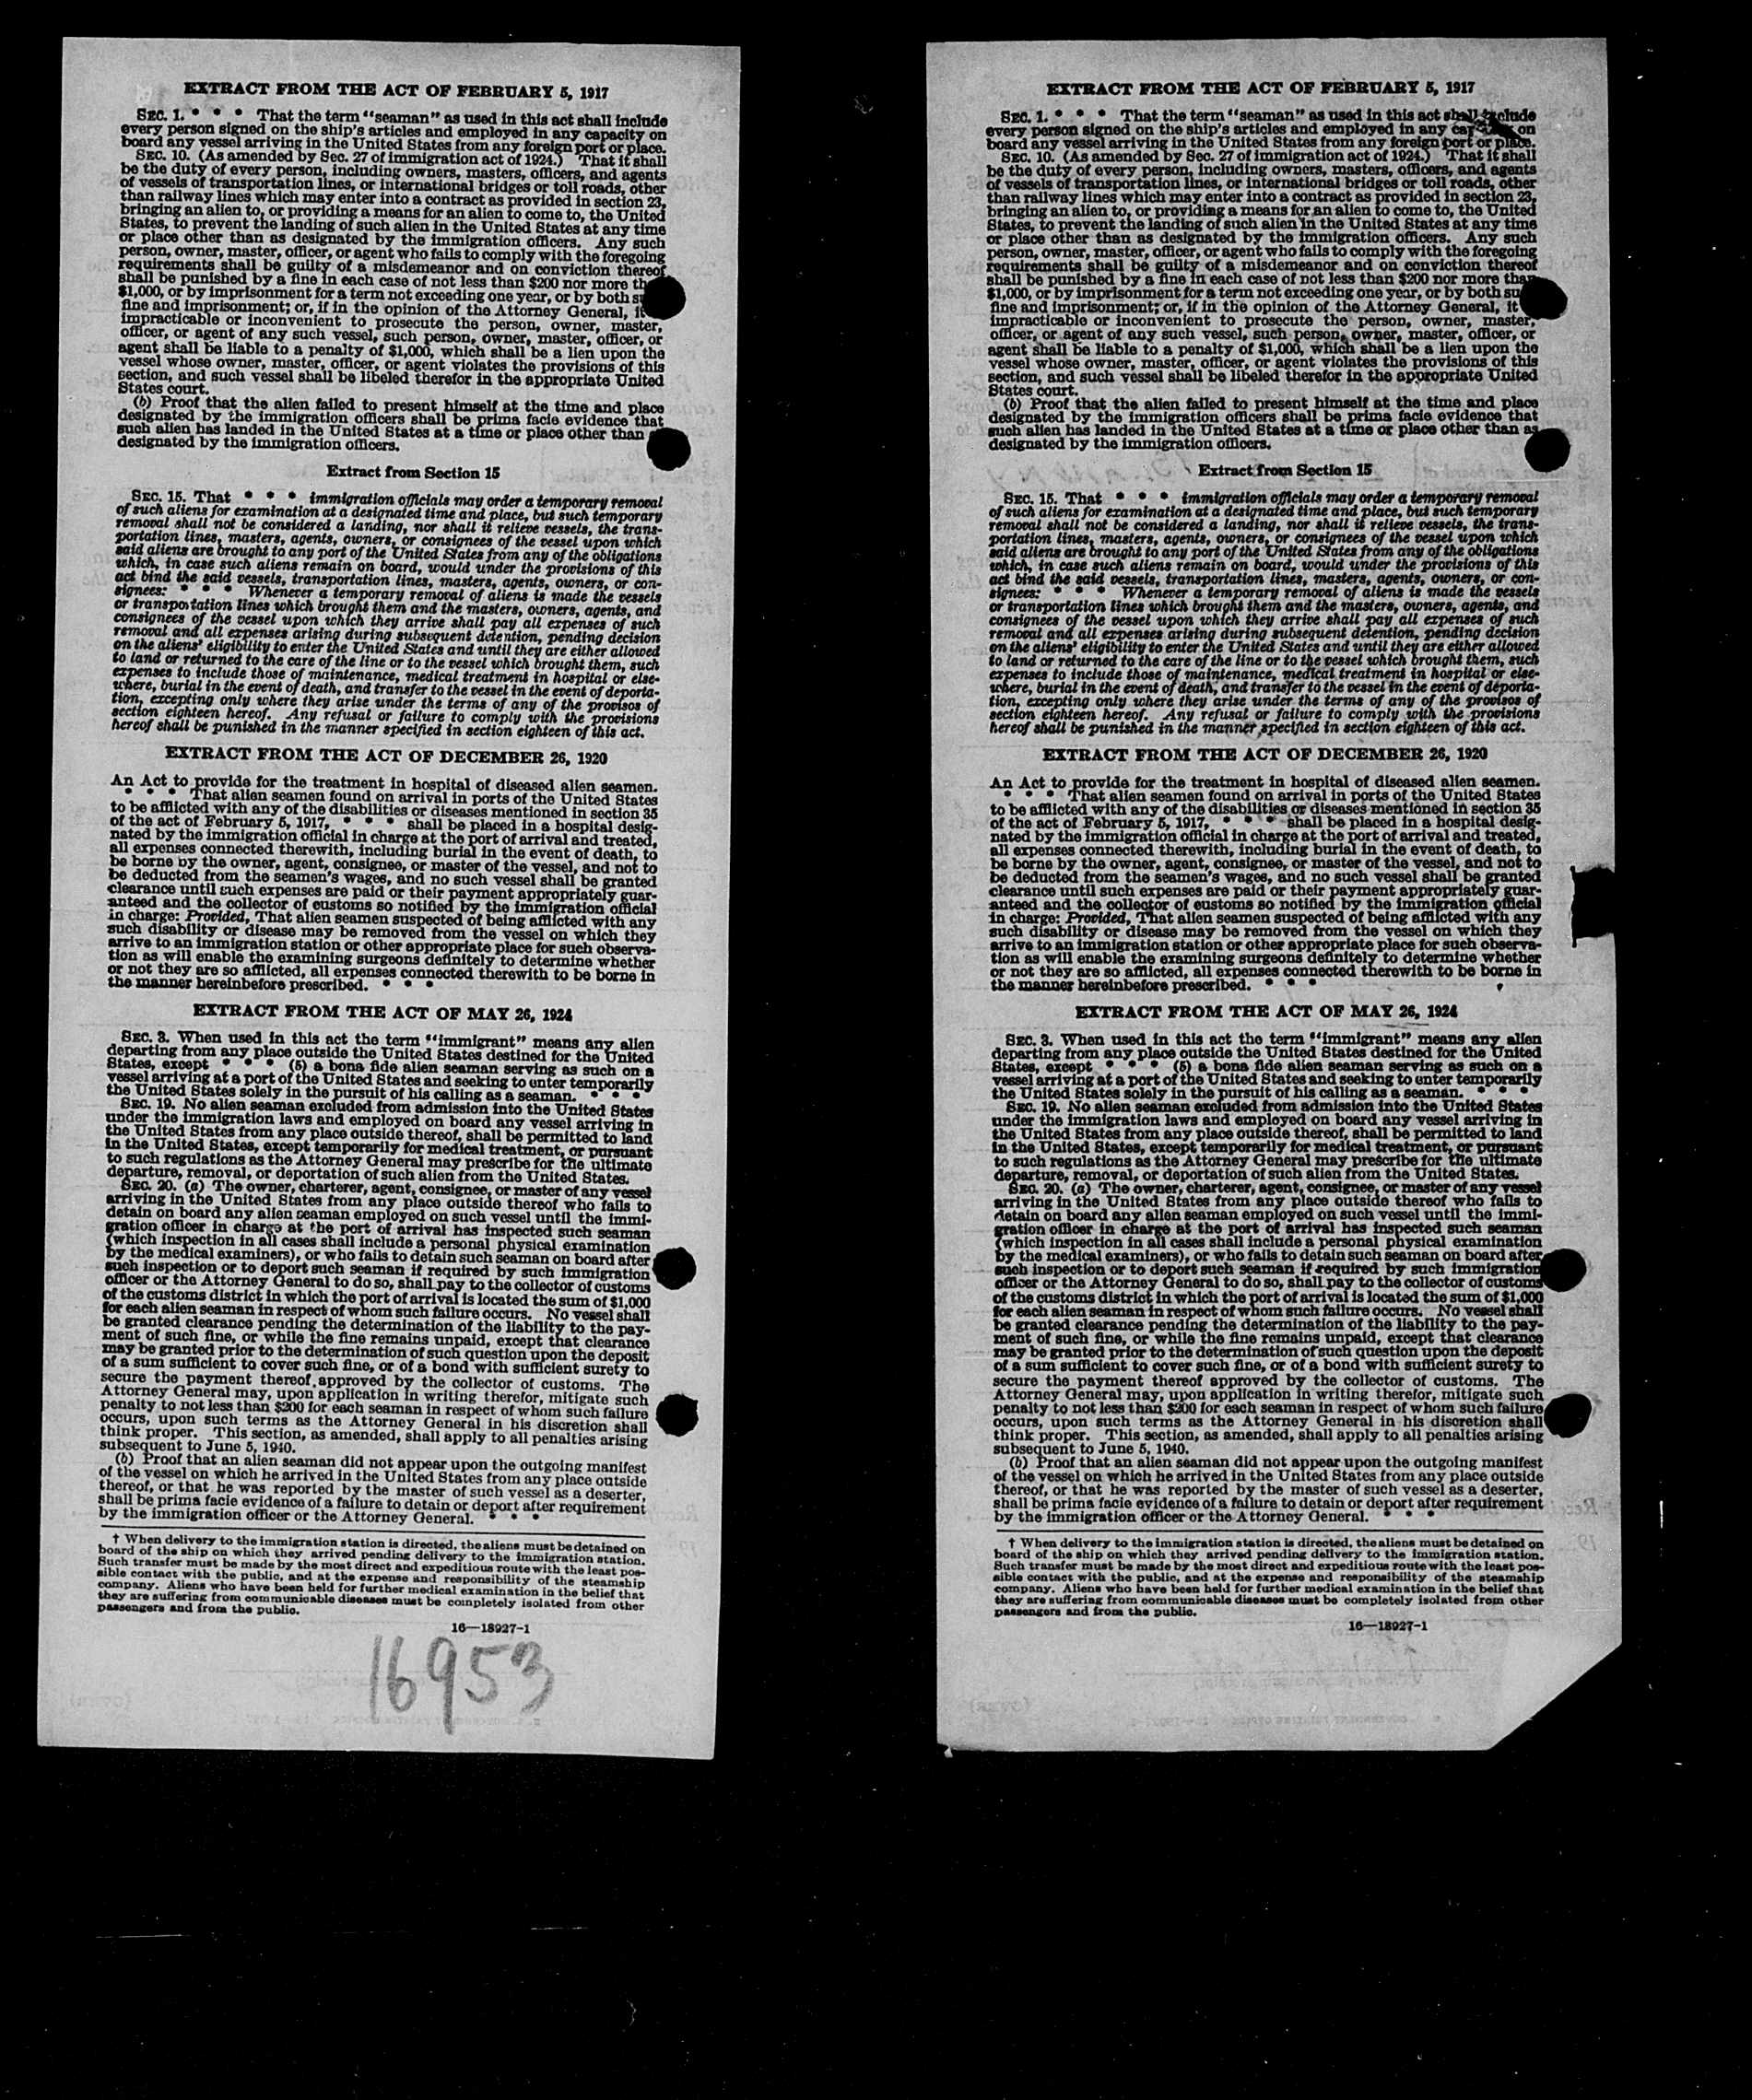 EXTRACT FROM THE ACT OF FEBRUARY 5, 1917
SEC. 1. * * * That the term "seaman" as used in this act shall include
every person signed on the ship's articles and employed in any capacity on
board any vessel arriving in the United States from any foreign port or place.
SEC. 10. (As amended by Sec. 27 of immigration act of 1924.) That it shall
be the duty of every person, including owners, masters, officers, and agents
of vessels of transportation lines, or international bridges or toll roads, other
than railway lines which may enter into a contract as provided in section 23,
bringing an alien to, or providing a means for an alien to come to, the United
States, to prevent the landing of such alien in the United States at any time
or place other than as designated by the immigration officers. Any such
person, owner, master, officer, or agent who fails to comply with the foregoing
requirements shall be guilty of a misdemeanor and on conviction thereof
shall be punished by a fine in each case of not less than $200 nor more
$1,000, or by imprisonment for a term not exceeding one year, or by both
fine and imprisonment; or, if in the opinion of the Attorney General, it
impracticable or inconvenient to prosecute the person, owner, master,
officer, or agent of any such vessel, such person, owner, master, officer, or
agent shall be liable to a penalty of $1,000, which shall be a lien upon the
vessel whose owner, master, officer, or agent violates the provisions of this
section, and such vessel shall be libeled therefor in the appropriate United
States court.
(b) Proof that the alien failed to present himself at the time and place
designated by the immigration officers shall be prima facie evidence that
such alien has landed in the United States at a time or place other than
designated by the immigration officers.
Extract from Section 15
SEC. 15. That * * * immigration officials may order a temporary removal
of such aliens for examination at a designated time and place, but such temporary
removal shall not be considered a landing, nor shall it relieve vessels, the trans-
portation lines, masters, agents, owners, or consignees of the vessel upon which
said aliens are brought to any port of the United States from any of the obligations
which, in case such aliens remain on board, would under the provisions of this
act bind the said vessels, transportation lines, masters, agents, owners, or con-
signees: * * * Whenever a temporary removal of aliens is made the vessels
or transportation lines which brought them and the masters, owners, agents, and
consignees of the vessel upon which they arrive shall pay all expenses of such
removal and all expenses arising during subsequent detention, pending decision
on the aliens' eligibility to enter the United States and until they are either allowed
to land or returned to the care of the line or to the vessel which brought them, such
expenses to include those of maintenance, medical treatment in hospital or else-
where, burial in the event of death, and transfer to the vessel in the event of deporta-
tion, excepting only where they arise under the terms of any of the provisos of
section eighteen hereof. Any refusal or failure to comply with the provisions
hereof shall be punished in the manner specified in section eighteen of this act.
EXTRACT FROM THE ACT OF DECEMBER 26, 1920
An Act to provide for the treatment in hospital of diseased alien seamen.
* * * That alien seamen found on arrival in ports of the United States
to be afflicted with any of the disabilities or diseases mentioned in section 35
of the act of February 5, 1917, * * * shall be placed in a hospital desig-
nated by the immigration official in charge at the port of arrival and treated,
all expenses connected therewith, including burial in the event of death, to
be borne by the owner, agent, consignee, or master of the vessel, and not to
be deducted from the seamen's wages, and no such vessel shall be granted
clearance until such expenses are paid or their payment appropriately guar-
anteed and the collector of customs so notified by the immigration official
in charge: Provided, That alien seamen suspected of being afflicted with any
such disability or disease may be removed from the vessel on which they
arrive to an immigration station or other appropriate place for such observa-
tion as will enable the examining surgeons definitely to determine whether
or not they are so afflicted, all expenses connected therewith to be borne in
the manner hereinbefore prescribed. * * *
EXTRACT FROM THE ACT OF MAY 26, 1924
SEC. 3. When used in this act the term "immigrant" means any alien
departing from any place outside the United States destined for the United
States, except * * * (5) a bona fide alien seaman serving as such on a
vessel arriving at a port of the United States and seeking to enter temporarily
the United States solely in the pursuit of his calling as a seaman. * * *
SEC. 19. No alien seaman excluded from admission into the United States
under the immigration laws and employed on board any vessel arriving in
the United States from any place outside thereof, shall be permitted to land
in the United States, except temporarily for medical treatment, or pursuant
to such regulations as the Attorney General may prescribe for the ultimate
departure, removal, or deportation of such alien from the United States.
SEC. 20. (a) The owner, charterer, agent, consignee, or master of any vessel
arriving in the United States from any place outside thereof who fails to
detain on board any alien seaman employed on such vessel until the immi-
gration officer in charge at the port of arrival has inspected such seaman
(which inspection in all cases shall include a personal physical examination
by the medical examiners), or who fails to detain such seaman on board after
such inspection or to deport such seaman if required by such immigration
officer or the Attorney General to do so, shall pay to the collector of customs
of the customs district in which the port of arrival is located the sum of $1,000
for each alien seaman in respect of whom such failure occurs. No vessel shall
be granted clearance pending the determination of the liability to the pay-
ment of such fine, or while the fine remains unpaid, except that clearance
may be granted prior to the determination of such question upon the deposit
of a sum sufficient to cover such fine, or of a bond with sufficient surety to
secure the payment thereof approved by the collector of customs. The
Attorney General may, upon application in writing therefor, mitigate such
penalty to not less than $200 for each seaman in respect of whom such failure
occurs, upon such terms as the Attorney General in his discretion shall
think proper. This section, as amended, shall apply to all penalties arising
subsequent to June 5, 1940.
(b) Proof that an alien seaman did not appear upon the outgoing manifest
of the vessel on which he arrived in the United States from any place outside
thereof, or that he was reported by the master of such vessel as a deserter,
shall be prima facie evidence of a failure to detain or deport after requirement
by the immigration officer or the Attorney General. * * *
† When delivery to the immigration station is directed, the aliens must be detained on
board of the ship on which they arrived pending delivery to the immigration station.
Such transfer must be made by the most direct and expeditious route with the least pos-
sible contact with the public, and at the expense and responsibility of the steamship
company. Aliens who have been held for further medical examination in the belief that
they are suffering from communicable diseases must be completely isolated from other
passengers and from the public.
16—18927-1
16953
EXTRACT FROM THE ACT OF FEBRUARY 5, 1917
SEC. 1. * * * That the term "seaman" as used in this act shall include
every person signed on the ship's articles and employed in any on
board any vessel arriving in the United States from any foreign port or place.
SEC. 10. (As amended by Sec. 27 of immigration act of 1924.) That it shall
be the duty of every person, including owners, masters, officers, and agents
of vessels of transportation lines, or international bridges or toll roads, other
than railway lines which may enter into a contract as provided in section 23,
bringing an alien to, or providing a means for an alien to come to, the United
States, to prevent the landing of such alien in the United States at any time
or place other than as designated by the immigration officers. Any such
person, owner, master, officer, or agent who fails to comply with the foregoing
requirements shall be guilty of a misdemeanor and on conviction thereof
shall be punished by a fine in each case of not less than $200 nor more than
$1,000, or by imprisonment for a term not exceeding one year, or by both
fine and imprisonment; or, if in the opinion of the Attorney General, it
impracticable or inconvenient to prosecute the person, owner, master,
officer, or agent of any such vessel, such person, owner, master, officer, or
agent shall be liable to a penalty of $1,000, which shall be a lien upon the
vessel whose owner, master, officer, or agent violates the provisions of this
section, and such vessel shall be libeled therefor in the appropriate United
States court.
(b) Proof that the alien failed to present himself at the time and place
designated by the immigration officers shall be prima facie evidence that
such alien has landed in the United States at a time or place other than as
designated by the immigration officers.
Extract from Section 15
SEC. 15. That * * * immigration officials may order a temporary removal
of such aliens for examination at a designated time and place, but such temporary
removal shall not be considered a landing, nor shall it relieve vessels, the trans-
portation lines, masters, agents, owners, or consignees of the vessel upon which
said aliens are brought to any port of the United States from any of the obligations
which, in case such aliens remain on board, would under the provisions of this
act bind the said vessels, transportation lines, masters, agents, owners, or con-
signees: * * * Whenever a temporary removal of aliens is made the vessels
or transportation lines which brought them and the masters, owners, agents, and
consignees of the vessel upon which they arrive shall pay all expenses of such
removal and all expenses arising during subsequent detention, pending decision
on the aliens' eligibility to enter the United States and until they are either allowed
to land or returned to the care of the line or to the vessel which brought them, such
expenses to include those of maintenance, medical treatment in hospital or else-
where, burial in the event of death, and transfer to the vessel in the event of deporta-
tion, excepting only where they arise under the terms of any of the provisos of
section eighteen hereof. Any refusal or failure to comply with the provisions
hereof shall be punished in the manner specified in section eighteen of this act.
EXTRACT FROM THE ACT OF DECEMBER 26, 1920
An Act to provide for the treatment in hospital of diseased alien seamen.
* * * That alien seamen found on arrival in ports of the United States
to be afflicted with any of the disabilities or diseases mentioned in section 35
of the act of February 5, 1917, * * * shall be placed in a hospital desig-
nated by the immigration official in charge at the port of arrival and treated,
all expenses connected therewith, including burial in the event of death, to
be borne by the owner, agent, consignee, or master of the vessel, and not to
be deducted from the seamen's wages, and no such vessel shall be granted
clearance until such expenses are paid or their payment appropriately guar-
anteed and the collector of customs so notified by the immigration official
in charge: Provided, That alien seamen suspected of being afflicted with any
such disability or disease may be removed from the vessel on which they
arrive to an immigration station or other appropriate place for such observa-
tion as will enable the examining surgeons definitely to determine whether
or not they are so afflicted, all expenses connected therewith to be borne in
the manner hereinbefore prescribed. * * *
EXTRACT FROM THE ACT OF MAY 26, 1924
SEC. 3. When used in this act the term "immigrant" means any alien
departing from any place outside the United States destined for the United
States, except * * * (5) a bona fide alien seaman serving as such on a
vessel arriving at a port of the United States and seeking to enter temporarily
the United States solely in the pursuit of his calling as a seaman. * * *
SEC. 19. No alien seaman excluded from admission into the United States
under the immigration laws and employed on board any vessel arriving in
the United States from any place outside thereof, shall be permitted to land
in the United States, except temporarily for medical treatment, or pursuant
to such regulations as the Attorney General may prescribe for the ultimate
departure, removal, or deportation of such alien from the United States.
SEC. 20. (a) The owner, charterer, agent, consignee, or master of any vessel
arriving in the United States from any place outside thereof who fails to
detain on board any alien seaman employed on such vessel until the immi-
gration officer in charge at the port of arrival has inspected such seaman
(which inspection in all cases shall include a personal physical examination
by the medical examiners), or who fails to detain such seaman on board after
such inspection or to deport such seaman if required by such immigration
officer or the Attorney General to do so, shall pay to the collector of customs
of the customs district in which the port of arrival is located the sum of $1,000
for each alien seaman in respect of whom such failure occurs. No vessel shall
be granted clearance pending the determination of the liability to the pay-
ment of such fine, or while the fine remains unpaid, except that clearance
may be granted prior to the determination of such question upon the deposit
of a sum sufficient to cover such fine, or of a bond with sufficient surety to
secure the payment thereof approved by the collector of customs. The
Attorney General may, upon application in writing therefor, mitigate such
penalty to not less than $200 for each seaman in respect of whom such failure
occurs, upon such terms as the Attorney General in his discretion shall
think proper. This section, as amended, shall apply to all penalties arising
subsequent to June 5, 1940.
(b) Proof that an alien seaman did not appear upon the outgoing manifest
of the vessel on which he arrived in the United States from any place outside
thereof, or that he was reported by the master of such vessel as a deserter,
shall be prima facie evidence of a failure to detain or deport after requirement
by the immigration officer or the Attorney General. * * *
† When delivery to the immigration station is directed, the aliens must be detained on
board of the ship on which they arrived pending delivery to the immigration station.
Such transfer must be made by the most direct and expeditious route with the least pos-
sible contact with the public, and at the expense and responsibility of the steamship
company. Aliens who have been held for further medical examination in the belief that
they are suffering from communicable diseases must be completely isolated from other
passengers and from the public.
16—18927-1